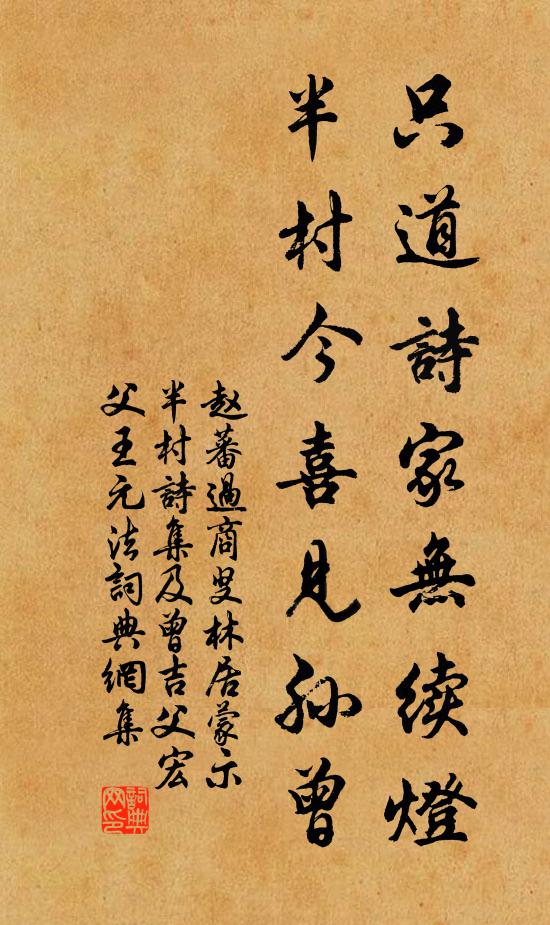 只道詩家無续燈
半村今喜見孙曾
赵蕃過商叟林居蒙示
半村詩集及曾吉父宏
父王元法詞典網集
詞典
网印